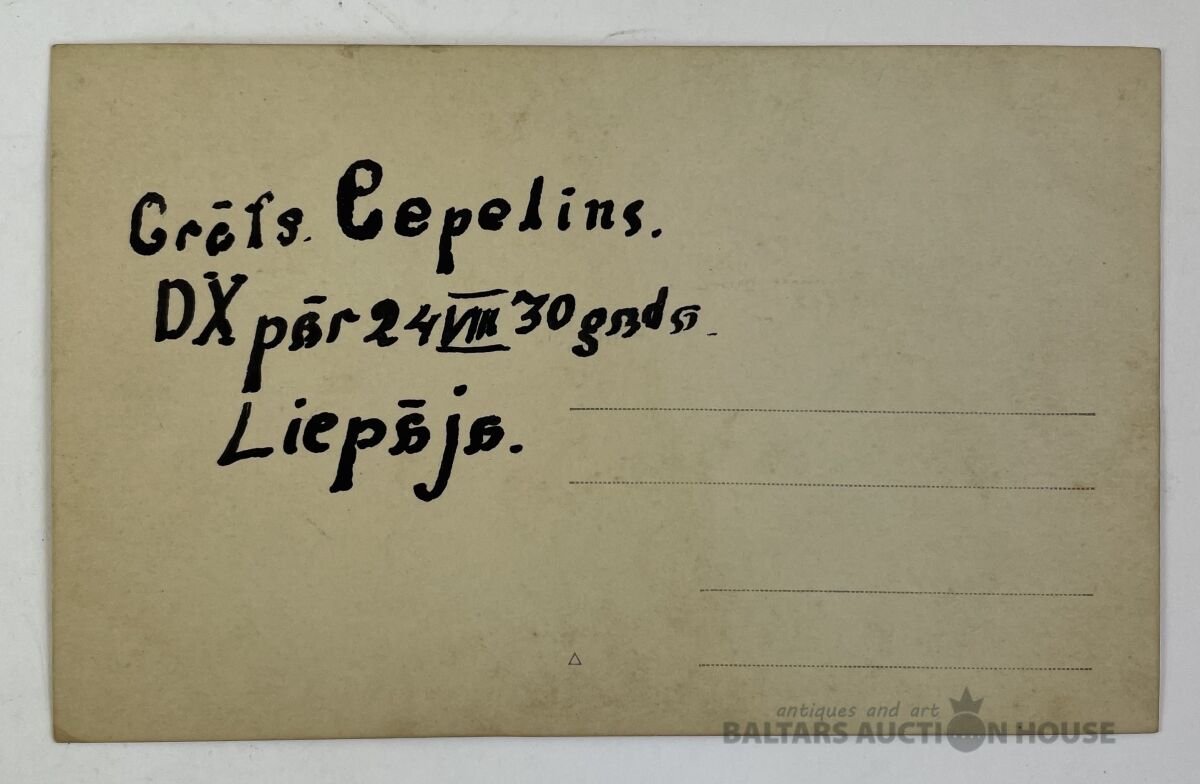 Grāfs. Cepelins.
DX pār 24 VIII 30 gadā.
Liepāja.
antiques and art
BALTARS AUCTION HOUSE